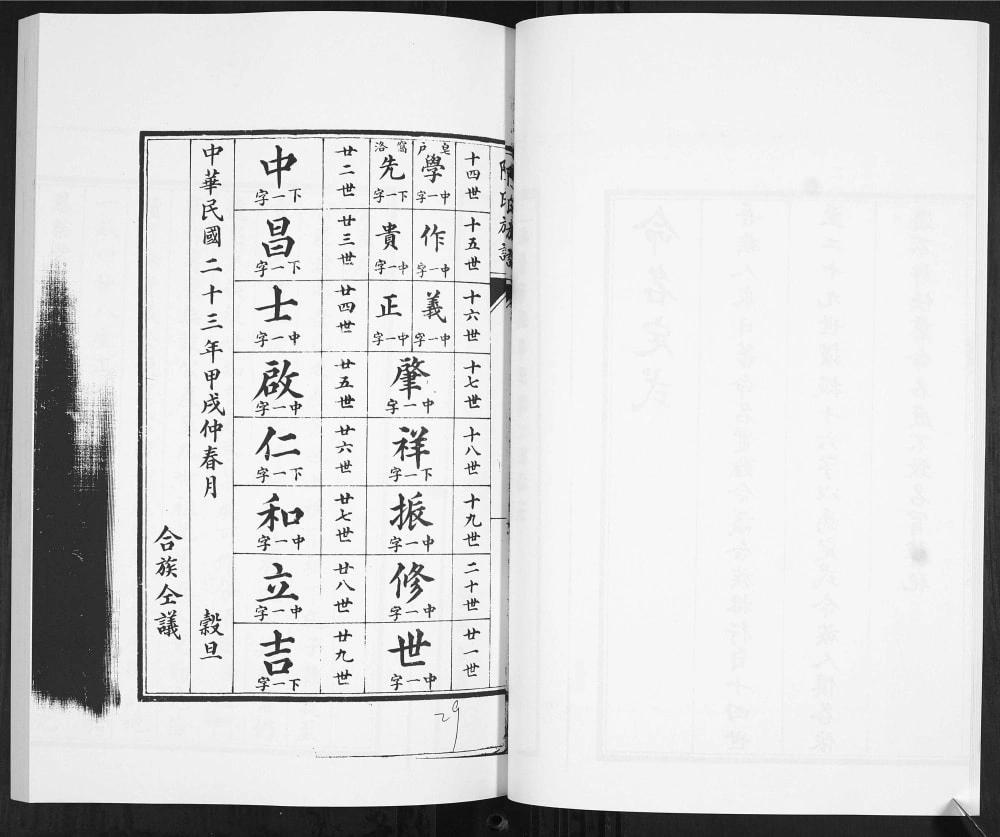 族譜
十四世
十五世
十六世
十七世
十八世
十九世
二十世
廿一世
皂戶
學
中一字
作
中一字
義
中一字
窩洛
先
下一字
貴
中一字
正
中一字
肇
中一字
祥
下一字
振
中一字
修
中一字
世
中一字
廿二世
廿三世
廿四世
廿五世
廿六世
廿七世
廿八世
廿九世
中
下一字
昌
下一字
士
中一字
啟
中一字
仁
下一字
和
中一字
立
中一字
吉
下一字
中華民國二十三年甲戌仲春月 穀旦
合族仝議
29